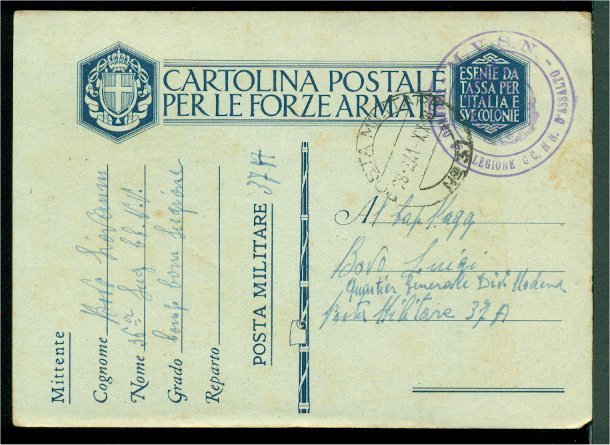 CARTOLINA POSTALE
PER LE FORZE ARMATE
ESENTE DA
TASSA PER
L'ITALIA E
SVE COLONIE
M.V.S.N. - LEGIONE CC. NN. D'ASSALTO -
POSTA MILITARE
Al Cap. Magg
Bovo Luigi
Quartier Generale Div. Modena
Posta Militare 37 A
Mittente
Cognome Bovo Giovanni
Nome 36ª Leg CC.NN.
Grado
Reparto
POSTA MILITARE 37 A